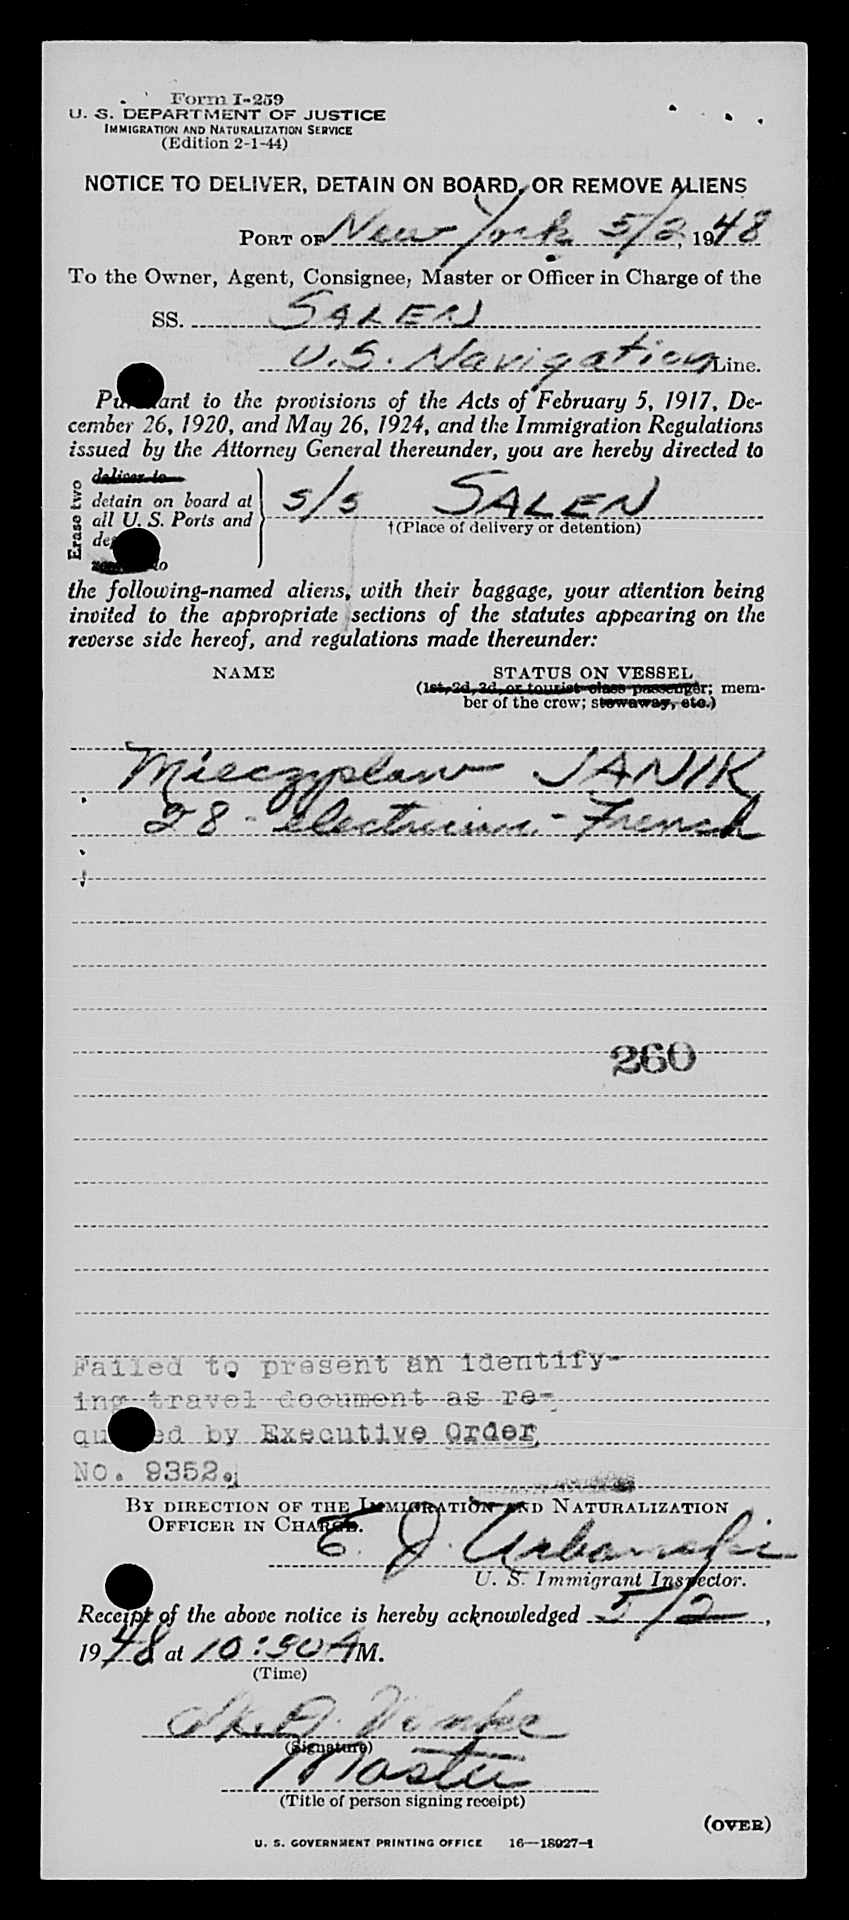 Form I-259
U. S. DEPARTMENT OF JUSTICE
IMMIGRATION AND NATURALIZATION SERVICE
(Edition 2-1-44)
NOTICE TO DELIVER, DETAIN ON BOARD, OR REMOVE ALIENS
PORT OF New York 5/2, 1948
To the Owner, Agent, Consignee, Master or Officer in Charge of the
SS. SALEN
U.S. Navigation Line.
Pursuant to the provisions of the Acts of February 5, 1917, De-
cember 26, 1920, and May 26, 1924, and the Immigration Regulations
issued by the Attorney General thereunder, you are hereby directed to
Erase two
deliver to
detain on board at
all U. S. Ports and
to
s/s SALEN
†(Place of delivery or detention)
the following-named aliens, with their baggage, your attention being
invited to the appropriate sections of the statutes appearing on the
reverse side hereof, and regulations made thereunder:
NAME STATUS ON VESSEL
(1st, 2d, 3d, or tourist class passenger; mem-
ber of the crew; stowaway, etc.)
Mieczyslaw JANIK
28 - electrician - French
260
Failed to present an identify-
ing travel document as re-
quired by Executive Order
No. 9352.
BY DIRECTION OF THE IMMIGRATION AND NATURALIZATION
OFFICER IN CHARGE.
E. J. Urbanski
U. S. Immigrant Inspector.
Receipt of the above notice is hereby acknowledged 5/2,
1948 at 10:30 A M.
(Time)
(Signature)
Master
(Title of person signing receipt)
(OVER)
U. S. GOVERNMENT PRINTING OFFICE 16—18927-1